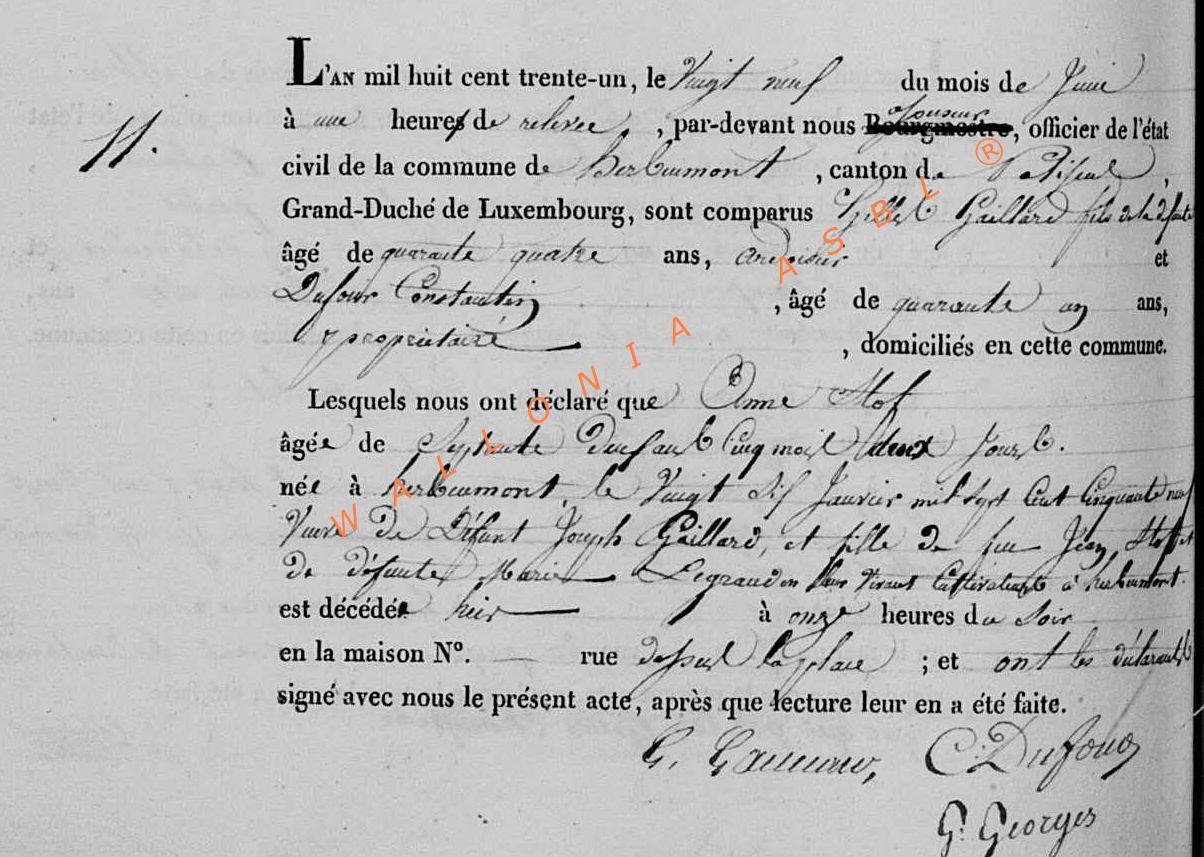 L'AN mil huit cent trente-un, le Vingt neuf du mois de Juin
à une heure de relevée, par-devant nous assesseur Bourgmestre, officier de l'état
11.
civil de la commune de herbeumont, canton de Paliseul,
Grand-Duché de Luxembourg, sont comparus Gilles Gaillard fils de la défunte
âgé de quarante quatre ans, ardoisier et
Dufour Constantin, âgé de quarante un ans,
propriétaire, domiciliés en cette commune.
Lesquels nous ont déclaré que Anne
âgée de Septante Deux ans Cinq mois deux Jours.
née à herbeumont, le Vingt Six Janvier mil Sept Cent Cinquante neuf
Veuve De Défunt Joseph Gaillard, et fille De feu Jean, et
de défunte Marie Legrand en leur vivant Cultivateurs à herbeumont.
est décédée hier à onze heures du Soir
en la maison N°. rue dessus la place ; et ont les déclarants
signé avec nous le présent acte, après que lecture leur en a été faite.
G. C: Dufour
G. Georges
WALLONIA ASBL ®